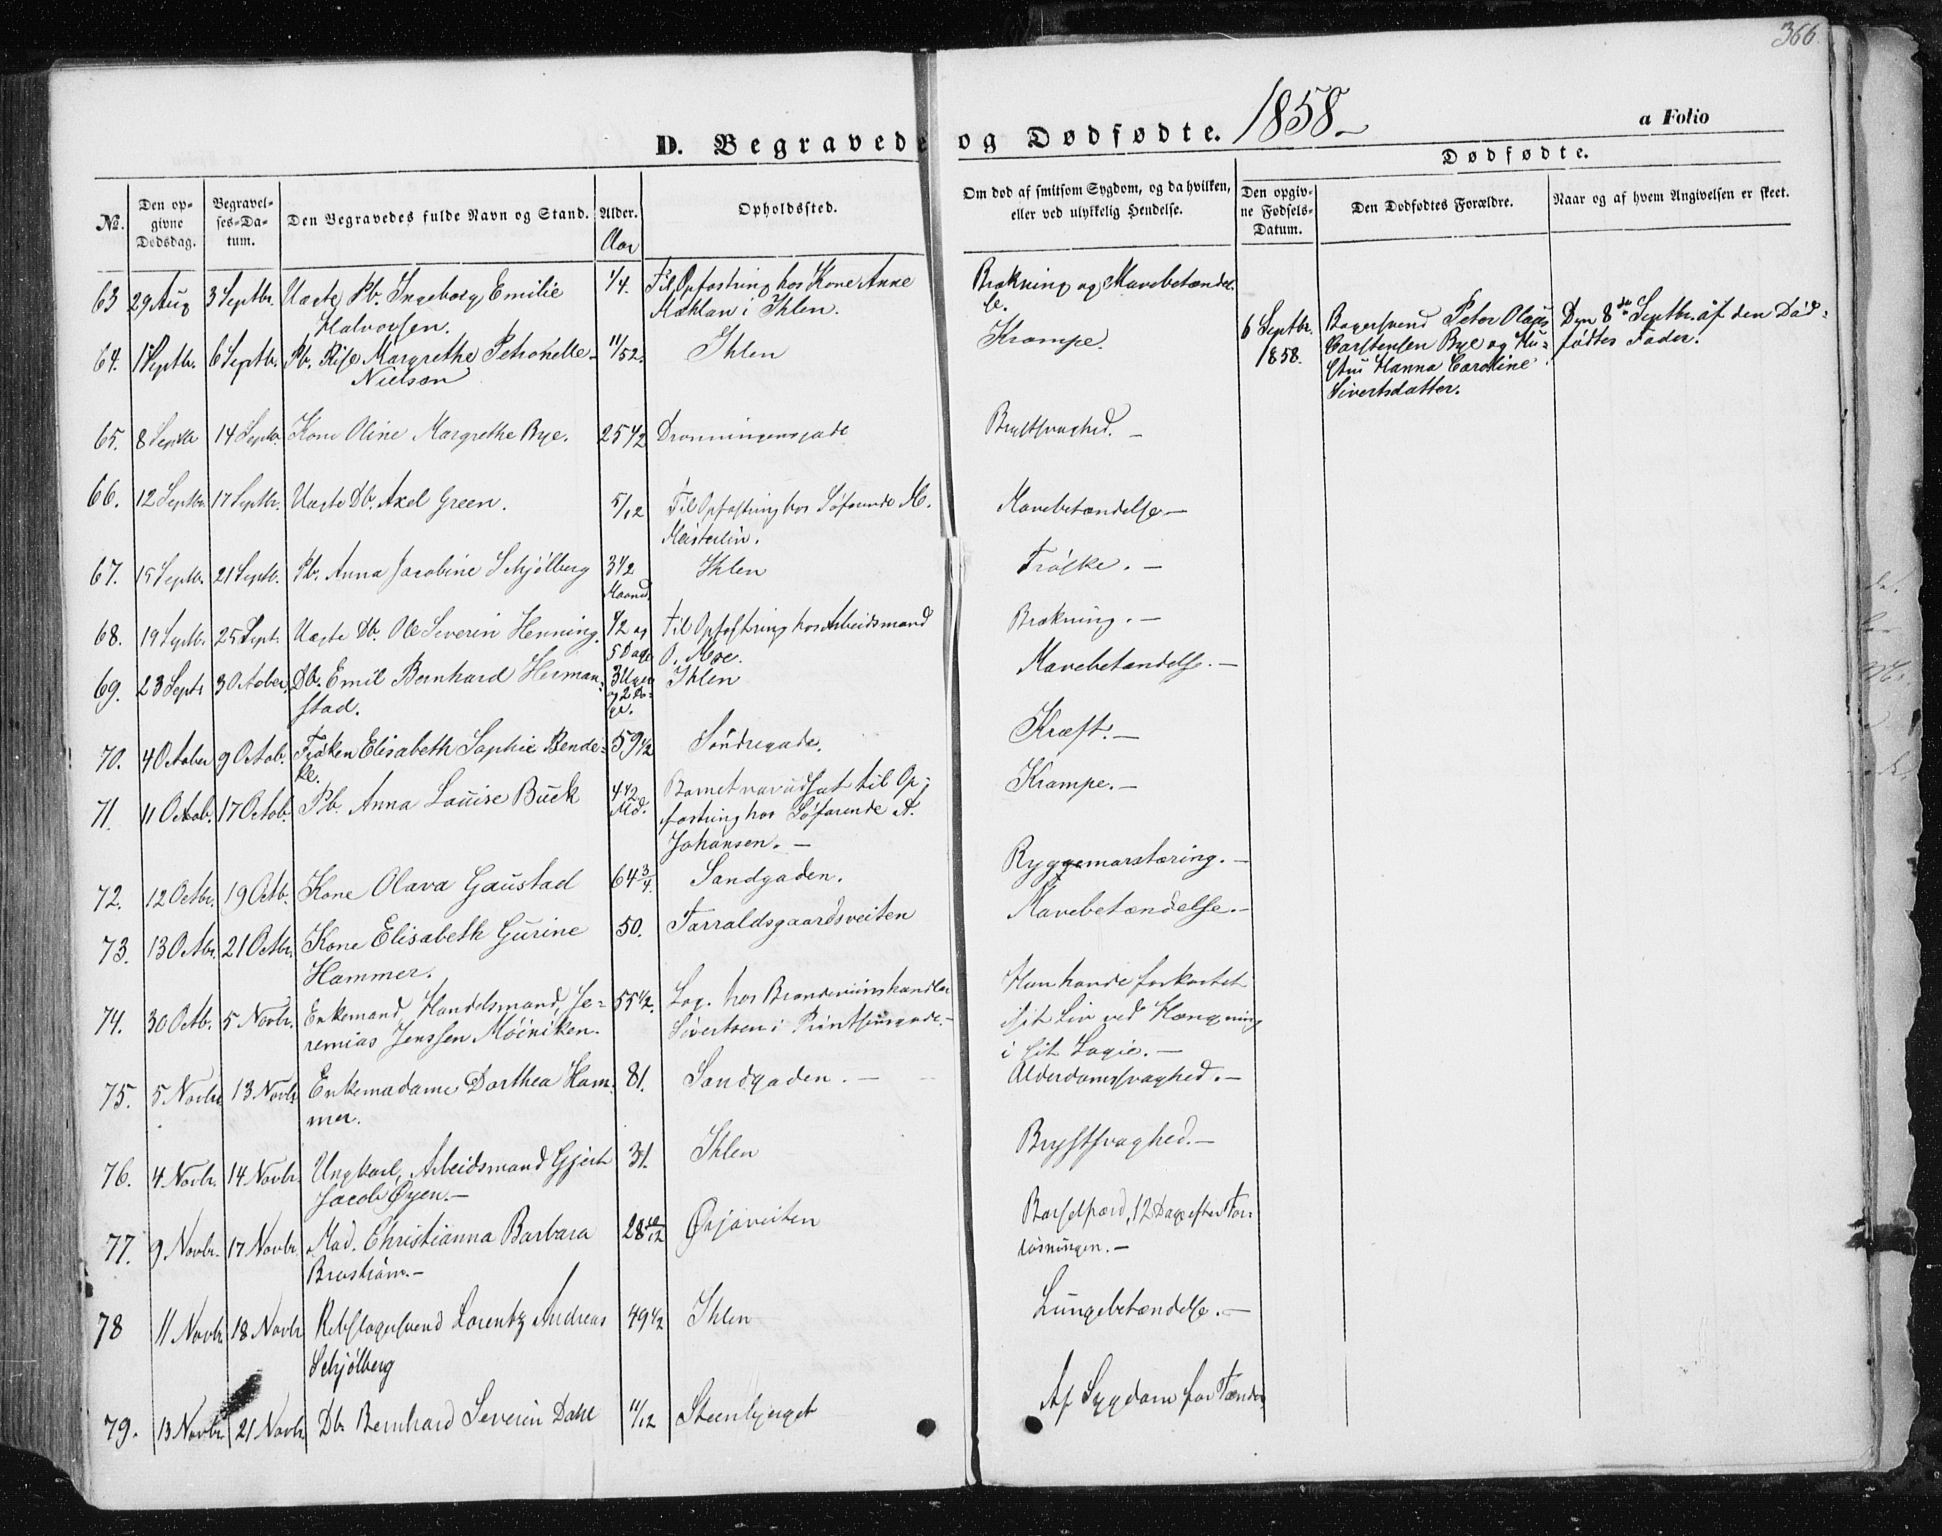 366.
D. Begravede og Dødfødte. 1858 –
a Folio
Dødfødte.
No. Den opgivne Dødsdag. Begravelses-Datum. Den Begravedes fulde Navn og Stand. Alder. Opholdssted. Om død af smitsom Sygdom, og da hvilken, eller ved ulykkelig Hendelse. Den opgivne Fødsels-Datum. Den Dødfødtes Forældre. Naar og af hvem Angivelsen er skeet.
Aar
63 29 Aug 3 Septbr. Uægte Pb. Ingeborg Emilie 1/4. Til Opfostring hos Kone Anne Brækning og Mavebetændel-
Halvorsen. i Ihlen. se.
6 Septbr. 1858. Bagersvend Peter Olaus Den 8de Septbr. af den Død-
Carstensen Bye og Hu- fødtes Fader.
stru Hanna Caroline
Sivertsdatter.
64. 1 Septbr. 6 Septbr. Pb. Margrethe Petronelle 11/52. Ihlen Krampe.
Nielsen
65. 8 Septbr 14 Septbr. Kone Oline Margrethe Bye. 25 1/2 Dronningensgade Brystsvaghed. –
66. 12 Septbr. 17 Septbr. Uægte Db. Axel Green. 5/12 Til Opfostring hos Søfarende M. Mavebetændelse –
Meisterlin.
67. 15 Septbr. 21 Septbr. Pb. Anna Jacobine Schjølberg 3 1/2 Ihlen Trøske. –
Maaned.
68. 19 Septbr. 25 Sept. Uægte Db. Ole Severin Henning. 1/2 og Til Opfostring hos Arbeidsmand Brækning. –
5 Dage O. Moe.
69. 23 Septr 3 October, Db. Emil Bernhard Herman- 3 Uger Ihlen Mavebetændelse. –
stad. og 2 Da-
ge.
70. 4 October 9 Octob. Frøken Elisabeth Sophie Bende- 59 1/2 Søndregade. Kræft. –
ke.
71. 11 Octob. 17 Octob. Pb. Anna Louise Buck 4 1/2 Barnet var udsat til Op- Krampe. –
Md. fostring hos Søfarende A.
Johansen. –
72. 12 Octbr. 19 Octb. Kone Olava Gaustad 64 3/4. Sandgaden. Ryggemarstæring. –
73. 13 Octbr. 21 Octbr. Kone Elisabeth Gurine 50. Tarraldsgaardsveiten Mavebetændelse. –
Hammer.
74. 30 Octb. 5 Novbr. Enkemand, Handelsmand, Je- 55 1/2. Log. hos Brændeviinshandler Han havde forkortet
remias Jenssen Møiniken. Sivertsen i Printsensgade. – sit Liv ved Hængning
i sit Logie. –
75. 5 Novbr 13 Novbr Enkemadame Dorthea Ham- 81. Sandgaden. – Alderdomssvaghed. –
mer.
76. 4 Novbr. 14 Novbr. Ungkarl, Arbeidsmand Gjert 31. Ihlen Brystsvaghed. –
Jacob Øyen. –
77. 9 Novbr. 17 Novbr. Mad. Christianna Barbara 28 10/12 Ørjaveiten Barselfærd, 12 Dage efter For-
Brostrøm. – løsningen. –
78 11 Novbr 18 Novbr Rebslagersvend Lorentz Andreas 49 1/2 Ihlen Lungebetændelse. –
Schjølberg
79. 13 Novbr. 21 Novbr Db. Bernhard Severin Dahl 11/12 Steenbjerget Af Sygdom for Tænder